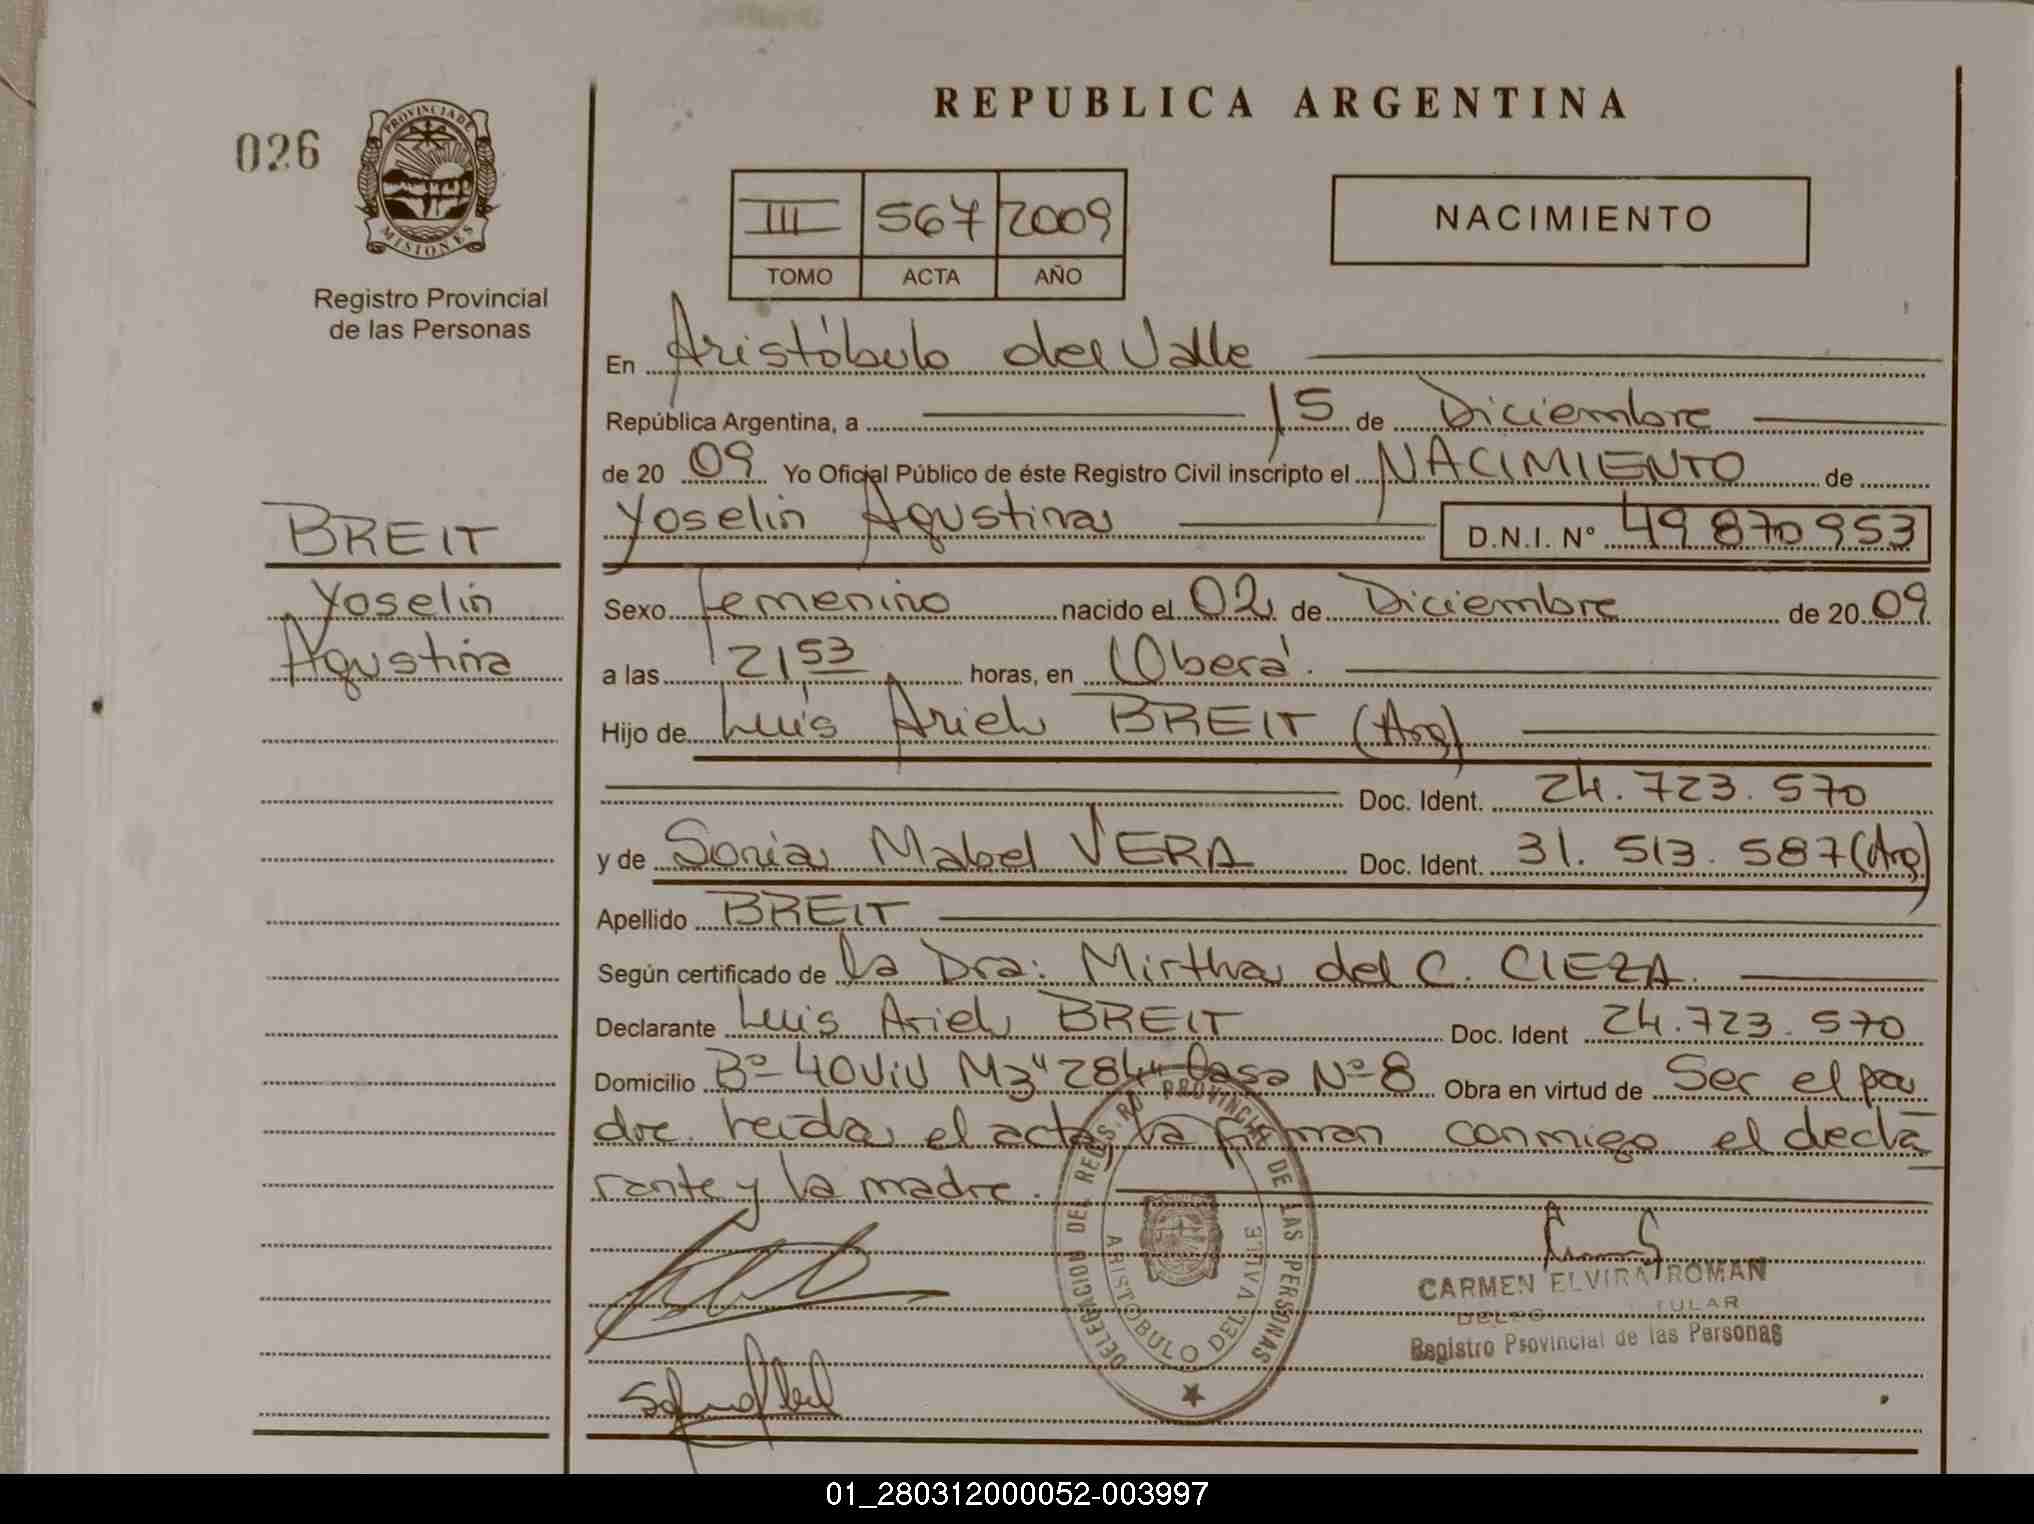 REPUBLICA ARGENTINA
026
PROVINCIA DE
MISIONES
Registro Provincial
de las Personas
III 567 2009
TOMO ACTA AÑO
NACIMIENTO
En Aristóbulo del Valle
República Argentina, a 15 de Diciembre
de 20 09 Yo Oficial Público de éste Registro Civil inscripto el NACIMIENTO de
Yoselin Agustina D.N.I. N° 49 870 953
BREIT
Yoselin
Agustina
Sexo femenino nacido el 02 de Diciembre de 20 09
a las 21 53 horas, en Oberá.
Hijo de Luis Ariel BREIT (Arg)
Doc. Ident. 24.723.570
y de Sonia Mabel VERA Doc. Ident. 31.513.587 (Arg)
Apellido BREIT
Según certificado de la Dra: Mirtha del C. CIEZA.
Declarante Luis Ariel BREIT Doc. Ident 24.723.570
Domicilio Bº 40 Viv Mz "284" Casa Nº 8 Obra en virtud de Ser el pa
dre. Leida el acta la firman conmigo el decla
rante y la madre.
DELEGACION DEL REGISTRO PROVINCIAL DE LAS PERSONAS
ARISTOBULO DEL VALLE
CARMEN ELVIRA ROMAN
Registro Provincial de las Personas
01_280312000052-003997